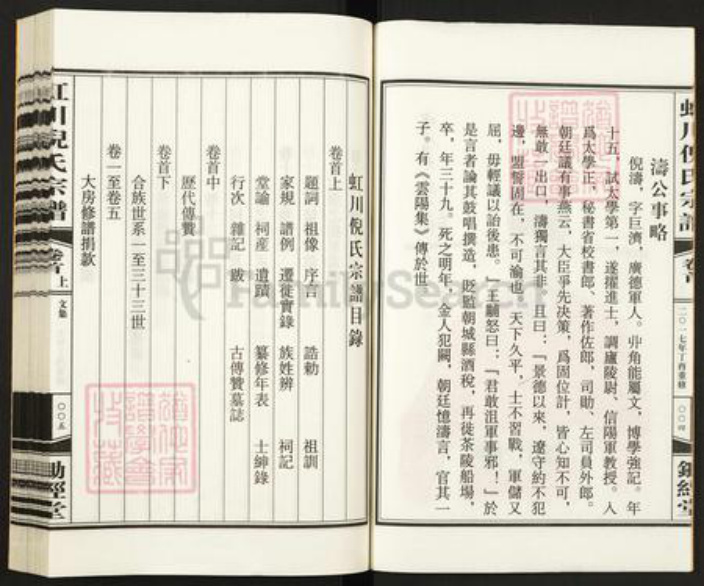 濤公事略
倪濤，字巨濟，廣德軍人。丱角能屬文，博學強記。年
十五，試太學第一，遂擢進士，調廬陵尉、信陽軍教授。入
爲太學正，秘書省校書郎、著作佐郎，司勛、左司員外郎。
朝廷議有事燕云，大臣爭先决策，爲固位計，皆心知不可，
無敢一出口，濤獨言其非，且曰：「景德以來，遼守約不犯
邊，盟誓固在，不可渝也。天下久平，士不習戰，軍儲又
屈，毋輕議以詒後患。」王黼怒曰：「君敢沮軍事邪！」於
是言者論其鼓唱撰造，貶監朝城縣酒稅，再徙茶陵船場，
卒，年三十九。死之明年，金人犯闕，朝廷憶濤言，官其一
子。有《雲陽集》傳於世
虹川倪氏宗譜
卷首
二〇一七年丁酉重修
〇〇四
鋤經堂
虹川倪氏宗譜目錄
卷首上
題詞 祖像 序言 誥勅 祖訓
家規 譜例 遷徙實錄 族姓辨 祠記
堂諭 祠産 遺蹟 纂修年表 士紳錄
行次 雜記 跋 古傳贊墓誌
卷首中
歷代傳贊
卷首下
合族世系一至三十三世
卷一至卷五
大房修譜捐款
虹川倪氏宗譜
卷首上
文集
〇〇五
鋤經堂
FamilySearch